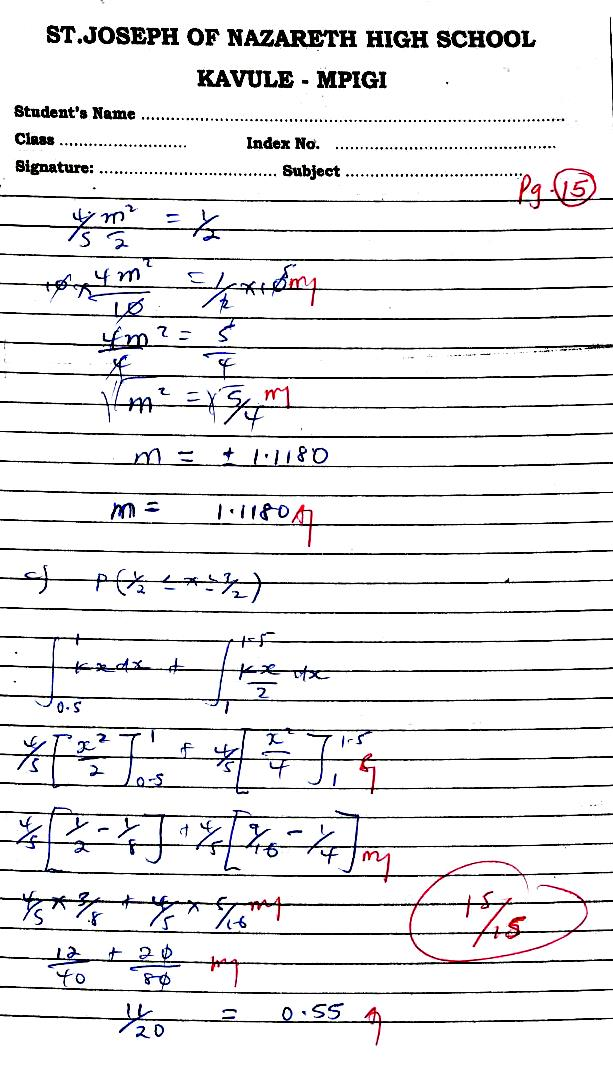 ST.JOSEPH OF NAZARETH HIGH SCHOOL
KAVULE - MPIGI
Student's Name ..........
Class .......... Index No. ..........
Signature: .......... Subject ..........
Pg. 15
4/5 m²/2 = 1/2
10 × 4m²/10 = 1/2 × 10 5 m1
4m²/4 = 5/4
√m² = √5/4 m1
m = ± 1.1180
m = 1.1180 A1
c) P(1/2 ≤ x ≤ 3/2)
∫_0.5^1 kx dx + ∫_1^1.5 kx/2 dx
4/5 [x²/2]_0.5^1 + 4/5 [x²/4]_1^1.5 B1
4/5 [1/2 - 1/8] + 4/5 [9/16 - 1/4] m1
4/5 × 3/8 + 4/5 × 5/16 m1
15/15
12/40 + 20/80 m1
11/20 = 0.55 A1